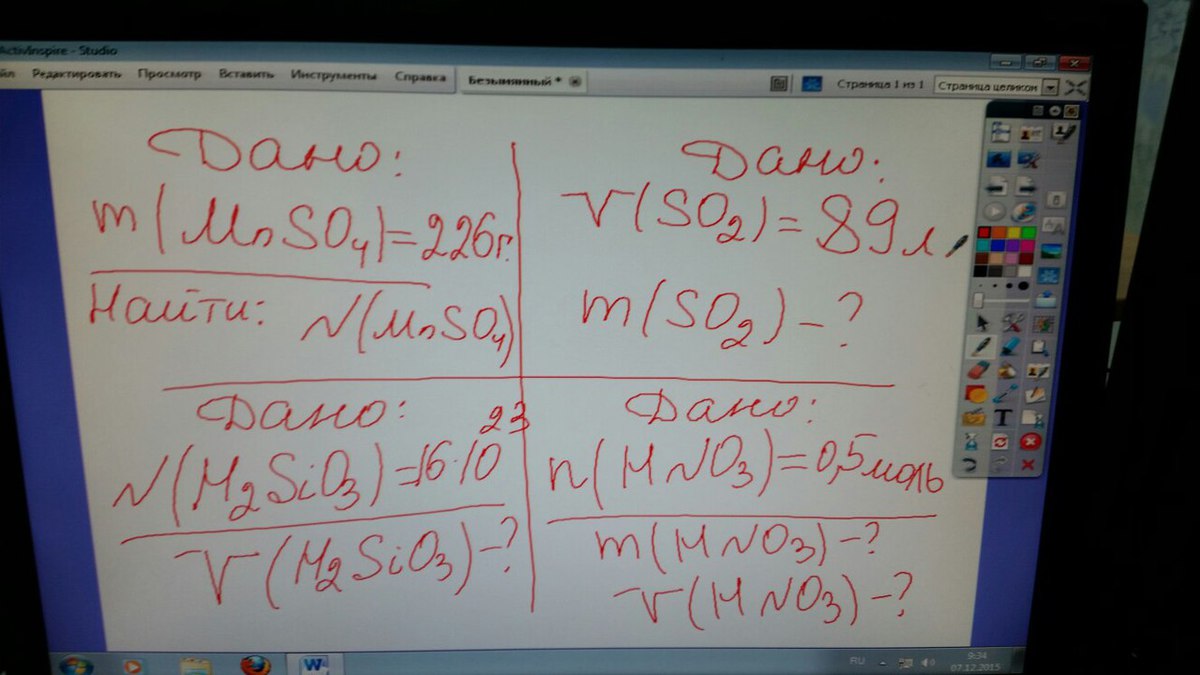 ActivInspire - Studio
йл Редактировать Просмотр Вставить Инструменты Справка Безымянный * Страница 1 из 1 Страница целиком
Дано:
m(MnSO₄)=226г.
Найти: N(MnSO₄)
Дано:
V(SO₂)=89л,
m(SO₂)-?
Дано:
N(H₂SiO₃)=16·10²³
V(H₂SiO₃)-?
Дано:
n(HNO₃)=0,5моль
m(HNO₃)-?
V(HNO₃)-?
RU 9:34
07.12.2015